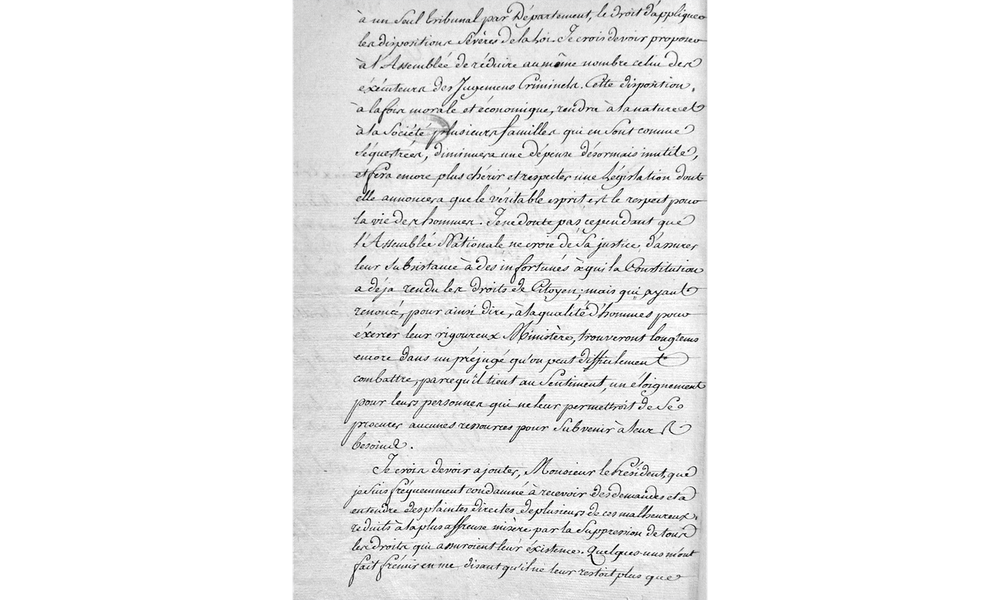 à un Seul tribunal par Département, le droit d'appliquer
les dispositions Sévères de la Loi. Je crois devoir proposer
à l'Assemblée de réduire au même nombre celui des
éxécuteurs des Jugemens Criminels. Cette disposition,
à la fois morale et économique, rendra à la nature et
à la Société plusieurs familles qui en Sont comme
Séquestrées, diminuera une dépense désormais inutile,
et fera encore plus chérir et respecter une Législation dont
elle annoncera que le véritable esprit est le respect pour
la vie des hommes. Je ne doute pas cependant que
l'Assemblée Nationale ne croie de Sa justice, d'assurer
leur Subsistance à des infortunés à qui la Constitution
a déja rendu les droits de Citoyen; mais qui ayant
renoncé, pour ainsi dire, à la qualité d'hommes pour
éxercer leur rigoureux Ministère, trouveront longtems
encore dans un préjugé qu'on peut difficilement
combattre, parcequ'il tient au Sentiment, un éloignement
pour leurs personnes qui ne leur permettroit de Se
procurer aucunes ressources pour Subvenir à leurs
besoins.
Je crois devoir ajouter, Monsieur le Président, que
je suis fréquemment condamné à recevoir des demandes et à
entendre des plaintes directes de plusieurs de ces malheureux,
réduits à la plus affreuse misère par la Suppression de tous
les droits qui assuroient leur éxistence. Quelques-uns m'ont
fait frémir en me disant qu'il ne leur restoit plus que